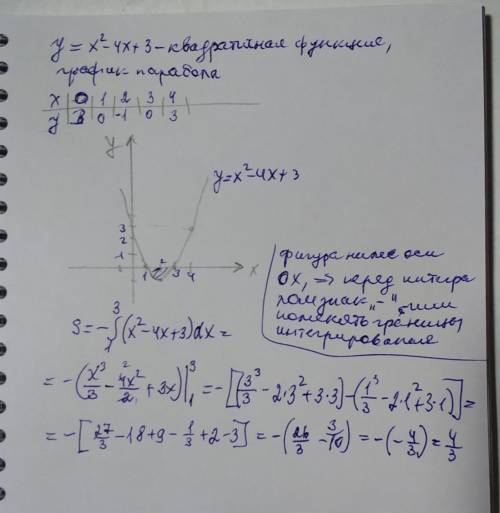 y = x² - 4x + 3 - квадратичная функция,
график парабола
x 0 1 2 3 4
y 3 0 -1 0 3
y
y = x² - 4x + 3
3
2
1
1 2 3 4 x
фигура ниже оси
OX, => перед интегра
лом знак "-" или
поменять границы
интегрирования
S = -∫₁³ (x² - 4x + 3) dx =
= -(x³/3 - 4x²/2 + 3x)|₁³ = -[(3³/3 - 2·3² + 3·3) - (1³/3 - 2·1² + 3·1)] =
= -[27/3 - 18 + 9 - 1/3 + 2 - 3] = -(26/3 - 10) = -(-4/3) = 4/3